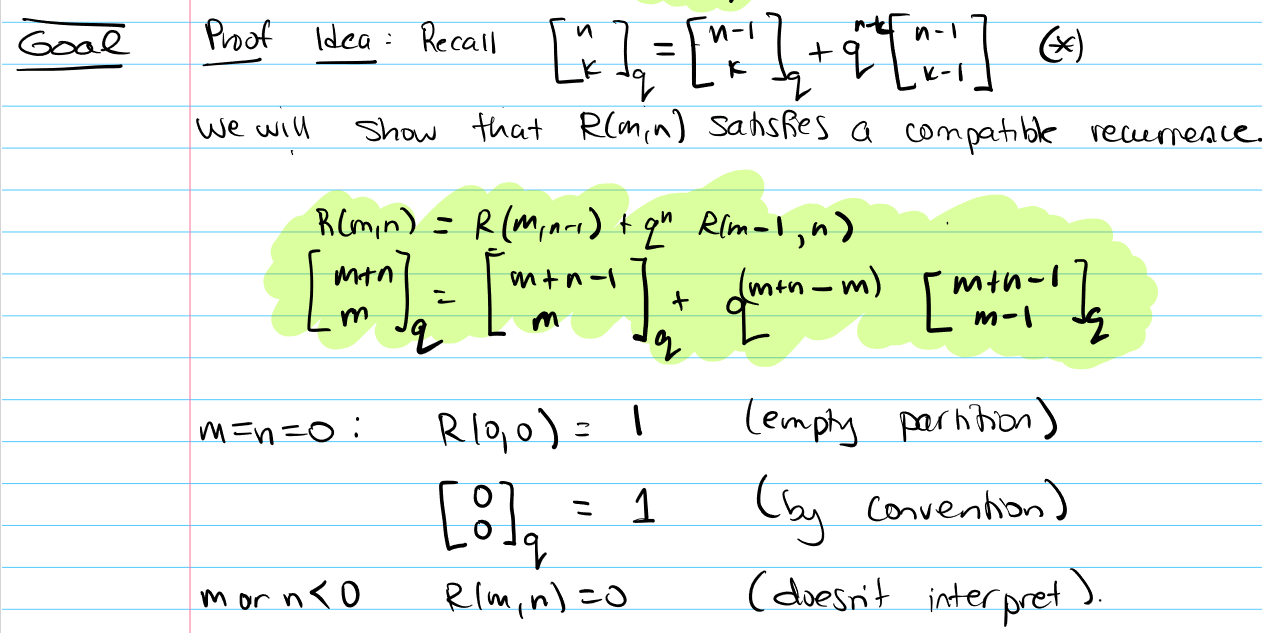 Goal Proof Idea: Recall [n k]_q = [n-1 k]_q + q^{n-k} [n-1 k-1] (*)
we will show that R(m,n) satisfies a compatible recurrence.
R(m,n) = R(m,n-1) + q^n R(m-1,n)
[m+n m]_q = [m+n-1 m]_q + q^{(m+n-m)} [m+n-1 m-1]_q
m=n=0: R(0,0) = 1 (empty partition)
[0 0]_q = 1 (by convention)
m or n<0 R(m,n)=0 (doesn't interpret).